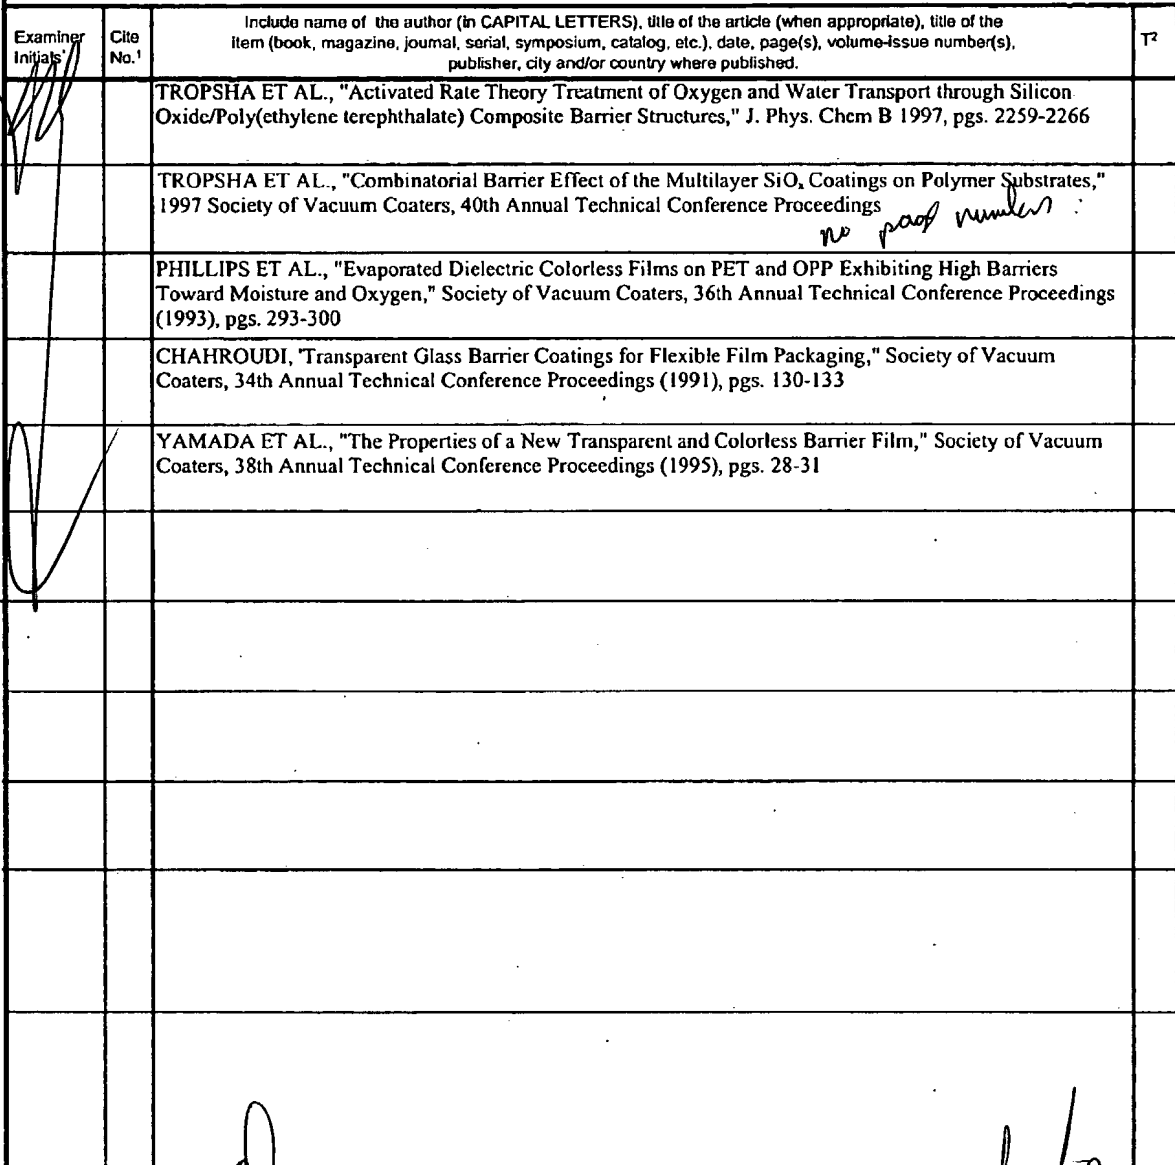 Examiner Initials*
Cite No.¹
Include name of the author (in CAPITAL LETTERS), title of the article (when appropriate), title of the
item (book, magazine, journal, serial, symposium, catalog, etc.), date, page(s), volume-issue number(s),
publisher, city and/or country where published.
T²
TROPSHA ET AL., "Activated Rate Theory Treatment of Oxygen and Water Transport through Silicon
Oxide/Poly(ethylene terephthalate) Composite Barrier Structures," J. Phys. Chem B 1997, pgs. 2259-2266
TROPSHA ET AL., "Combinatorial Barrier Effect of the Multilayer SiOₓ Coatings on Polymer Substrates,"
1997 Society of Vacuum Coaters, 40th Annual Technical Conference Proceedings
no numbers
PHILLIPS ET AL., "Evaporated Dielectric Colorless Films on PET and OPP Exhibiting High Barriers
Toward Moisture and Oxygen," Society of Vacuum Coaters, 36th Annual Technical Conference Proceedings
(1993), pgs. 293-300
CHAHROUDI, "Transparent Glass Barrier Coatings for Flexible Film Packaging," Society of Vacuum
Coaters, 34th Annual Technical Conference Proceedings (1991), pgs. 130-133
YAMADA ET AL., "The Properties of a New Transparent and Colorless Barrier Film," Society of Vacuum
Coaters, 38th Annual Technical Conference Proceedings (1995), pgs. 28-31